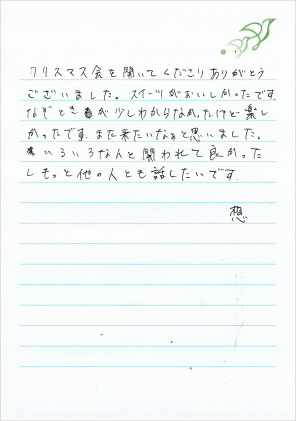 クリスマス会を開いてくださりありがとう
ございました。スイーツがおいしかったです。
なぞときが少しわかりなかったけど楽し
かったです。また来たいなぁと思いました。
いろいろなんと関われて良かった
しもっと他の人とも話したいです
想